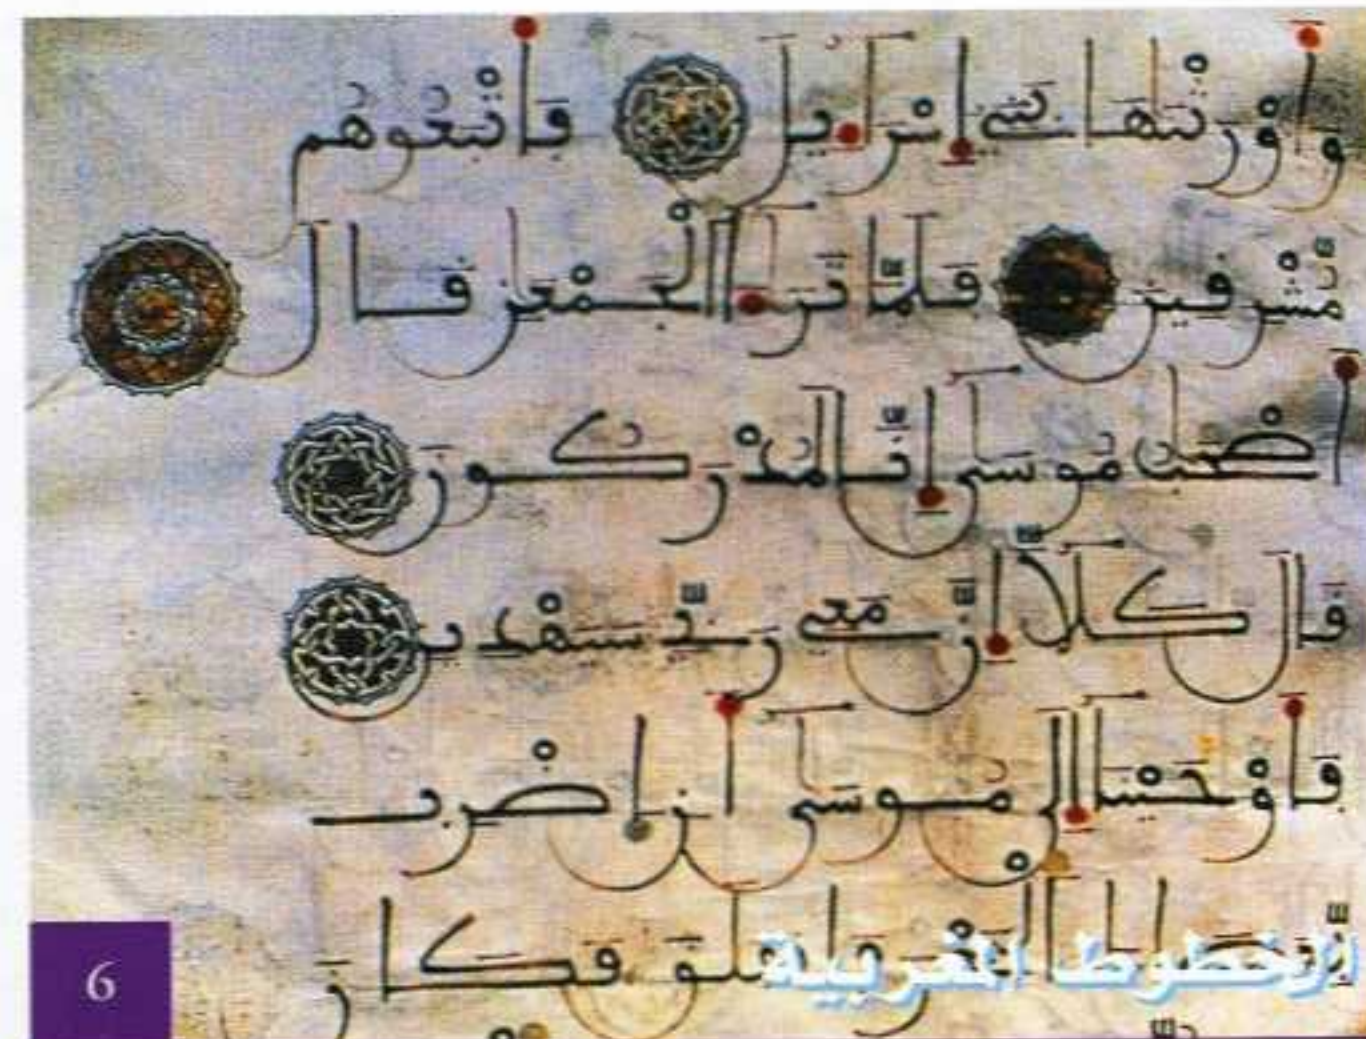 وَأَوْرَثْنَهَا بَنِي إِسْرَآءِيلَ فَأَتْبَعُوهُم
مُّشْرِفِينَ فَلَمَّا تَرَءَا الْجَمْعَنِ قَالَ
أَصْحَبُ مُوسَى إِنَّا لَمُدْرَكُونَ
قَالَ كَلَّا إِنَّ مَعِي رَبِّي سَيَهْدِينِ
فَأَوْحَيْنَا إِلَى مُوسَى أَنِ اضْرِب
بِّعَصَاكَ الْبَحْرَ فَانفَلَقَ فَكَانَ
الخطوط المغربية
6